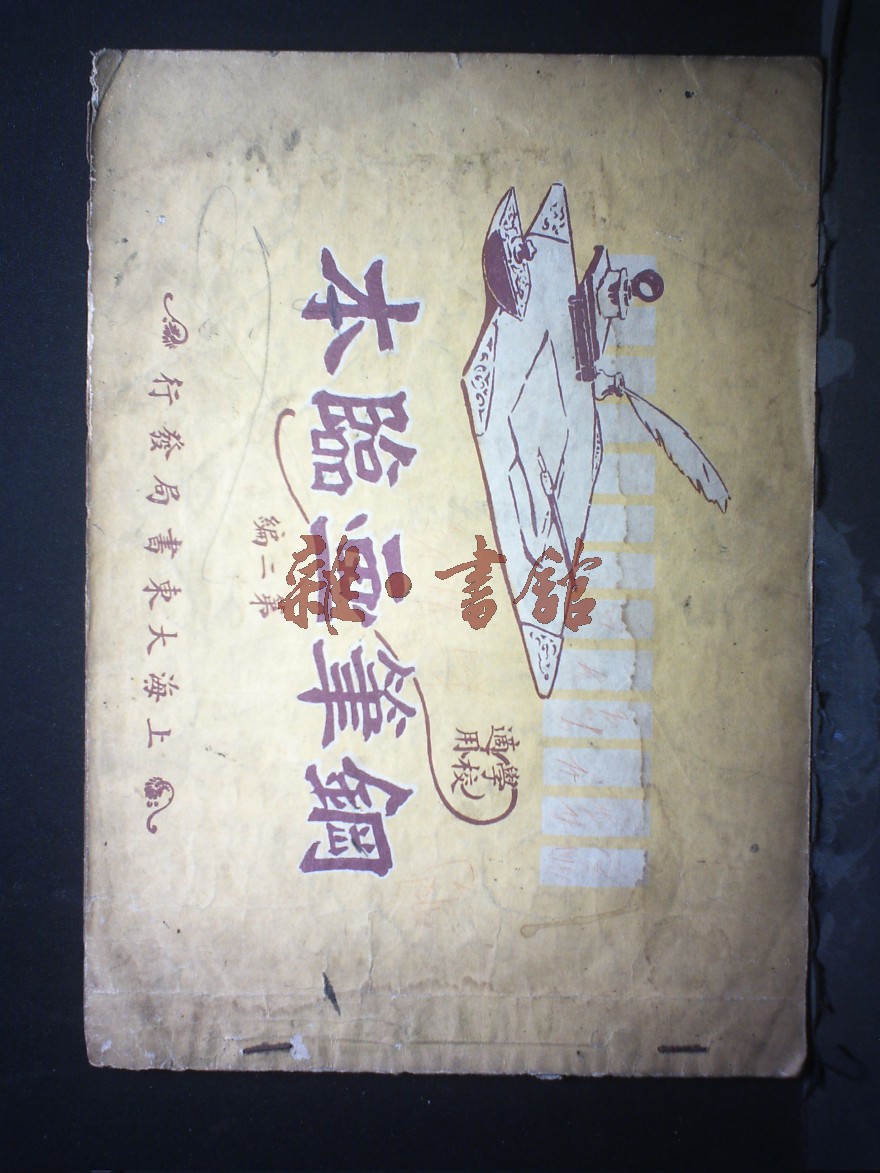 學校
適用
鋼筆畫臨本
第二編
上海大東書局發行
雜·書館